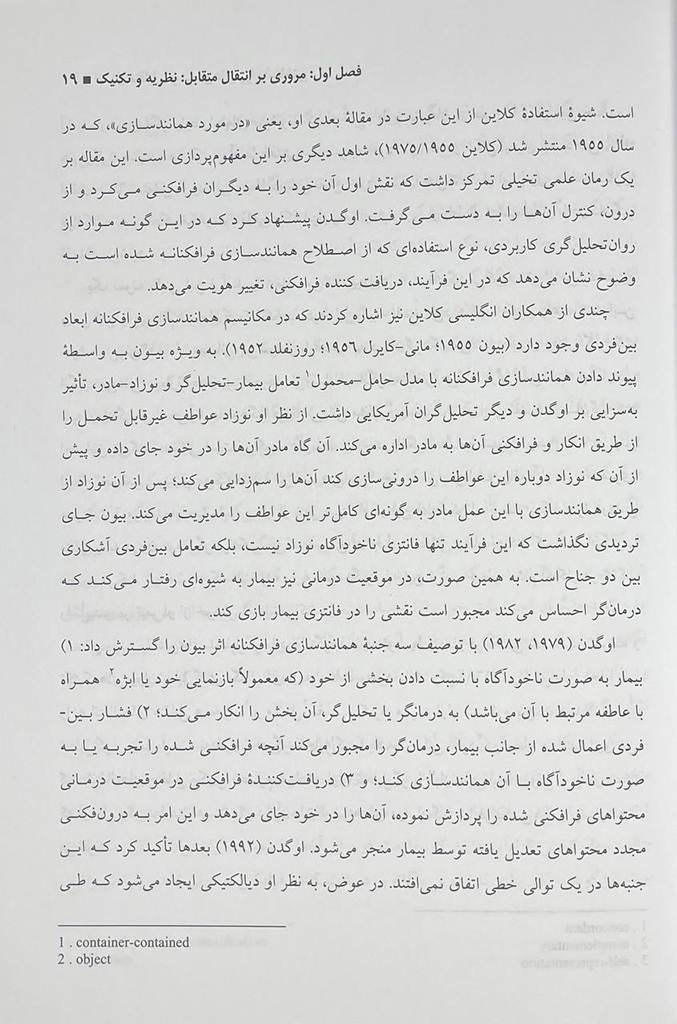 فصل اول: مروری بر انتقال متقابل: نظریه و تکنیک ■ ۱۹
است. شیوهٔ استفادهٔ کلاین از این عبارت در مقالهٔ بعدی او، یعنی «در مورد همانندسازی»، که در
سال ۱۹۵۵ منتشر شد (کلاین ۱۹۷۵/۱۹۵۵)، شاهد دیگری بر این مفهوم‌پردازی است. این مقاله بر
یک رمان علمی تخیلی تمرکز داشت که نقش اول آن خود را به دیگران فرافکنی می‌کرد و از
درون، کنترل آن‌ها را به دست می‌گرفت. اوگدن پیشنهاد کرد که در این گونه موارد از
روان‌تحلیل‌گری کاربردی، نوع استفاده‌ای که از اصطلاح همانندسازی فرافکنانه شده است به
وضوح نشان می‌دهد که در این فرآیند، دریافت کننده فرافکنی، تغییر هویت می‌دهد.
چندی از همکاران انگلیسی کلاین نیز اشاره کردند که در مکانیسم همانندسازی فرافکنانه ابعاد
بین‌فردی وجود دارد (بیون ۱۹۵۵؛ مانی-کایرل ۱۹۵۶؛ روزنفلد ۱۹۵۲). به ویژه بیون به واسطهٔ
پیوند دادن همانندسازی فرافکنانه با مدل حامل-محمول۱ تعامل بیمار-تحلیل‌گر و نوزاد-مادر، تأثیر
به‌سزایی بر اوگدن و دیگر تحلیل‌گران آمریکایی داشت. از نظر او نوزاد عواطف غیرقابل تحمل را
از طریق انکار و فرافکنی آن‌ها به مادر اداره می‌کند. آن گاه مادر آن‌ها را در خود جای داده و پیش
از آن که نوزاد دوباره این عواطف را درونی‌سازی کند آن‌ها را سم‌زدایی می‌کند؛ پس از آن نوزاد از
طریق همانندسازی با این عمل مادر به گونه‌ای کامل‌تر این عواطف را مدیریت می‌کند. بیون جای
تردیدی نگذاشت که این فرآیند تنها فانتزی ناخودآگاه نوزاد نیست، بلکه تعامل بین‌فردی آشکاری
بین دو جناح است. به همین صورت، در موقعیت درمانی نیز بیمار به شیوه‌ای رفتار می‌کند که
درمان‌گر احساس می‌کند مجبور است نقشی را در فانتزی بیمار بازی کند.
اوگدن (۱۹۷۹، ۱۹۸۲) با توصیف سه جنبهٔ همانندسازی فرافکنانه اثر بیون را گسترش داد: ۱)
بیمار به صورت ناخودآگاه با نسبت دادن بخشی از خود (که معمولاً بازنمایی خود یا ابژه۲ همراه
با عاطفه مرتبط با آن می‌باشد) به درمانگر یا تحلیل‌گر، آن بخش را انکار می‌کند؛ ۲) فشار بین-
فردی اعمال شده از جانب بیمار، درمان‌گر را مجبور می‌کند آنچه فرافکنی شده را تجربه یا به
صورت ناخودآگاه با آن همانندسازی کند؛ و ۳) دریافت‌کنندهٔ فرافکنی در موقعیت درمانی
محتواهای فرافکنی شده را پردازش نموده، آن‌ها را در خود جای می‌دهد و این امر به درون‌فکنی
مجدد محتواهای تعدیل یافته توسط بیمار منجر می‌شود. اوگدن (۱۹۹۲) بعدها تأکید کرد که این
جنبه‌ها در یک توالی خطی اتفاق نمی‌افتند. در عوض، به نظر او دیالکتیکی ایجاد می‌شود که طی
1 . container-contained
2 . object